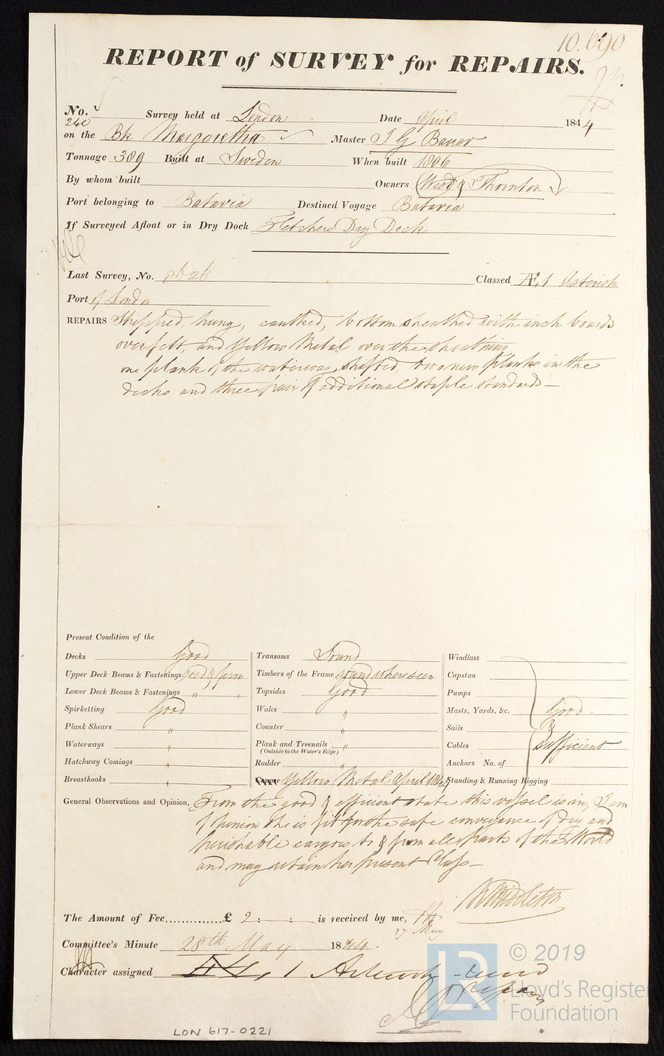 10.690
REPORT of SURVEY for REPAIRS.
No. 240 Survey held at London Date April 1844
on the Bk Margaretha Master J G Bauer
Tonnage 389 Built at Sweden When built 1806
By whom built Owners Thornton
Port belonging to Batavia Destined Voyage Batavia
If Surveyed Afloat or in Dry Dock Fletchers Dry Dock
Last Survey, No. Classed Æ 1
Port of London
REPAIRS Stripped, hung, caulked, bottom sheathed with inch boards
over felt, and Yellow Metal over the sheathing
one plank of the waterway shifted two new planks in the
decks and three pair of additional staple standards —
Present Condition of the
Decks Good
Upper Deck Beams & Fastenings good & firm
Lower Deck Beams & Fastenings " "
Spirketting Good
Plank Shears "
Waterways "
Hatchway Comings "
Breasthooks "
Transoms Sound
Timbers of the Frame Sound where seen
Topsides Good
Wales "
Counter "
Plank and Treenails "
(Outside to the Water's Edge)
Rudder "
Yellow Metal April 1844
Windlass
Capstan
Pumps
Masts, Yards, &c. Good
Sails &
Cables sufficient
Anchors No. of
Standing & Running Rigging
General Observations and Opinion, From the good & efficient state this vessel is in, I am
of opinion she is fit for the safe conveyance of dry and
perishable cargoes to & from all parts of the World
and may retain her present Class —
Middleton
The Amount of Fee............£ 2 : - : - is received by me,
27 May
Committee's Minute 28th May 1844.
Character assigned 1
© 2019
Lloyd's Register
Foundation
LR
LON 617-0221